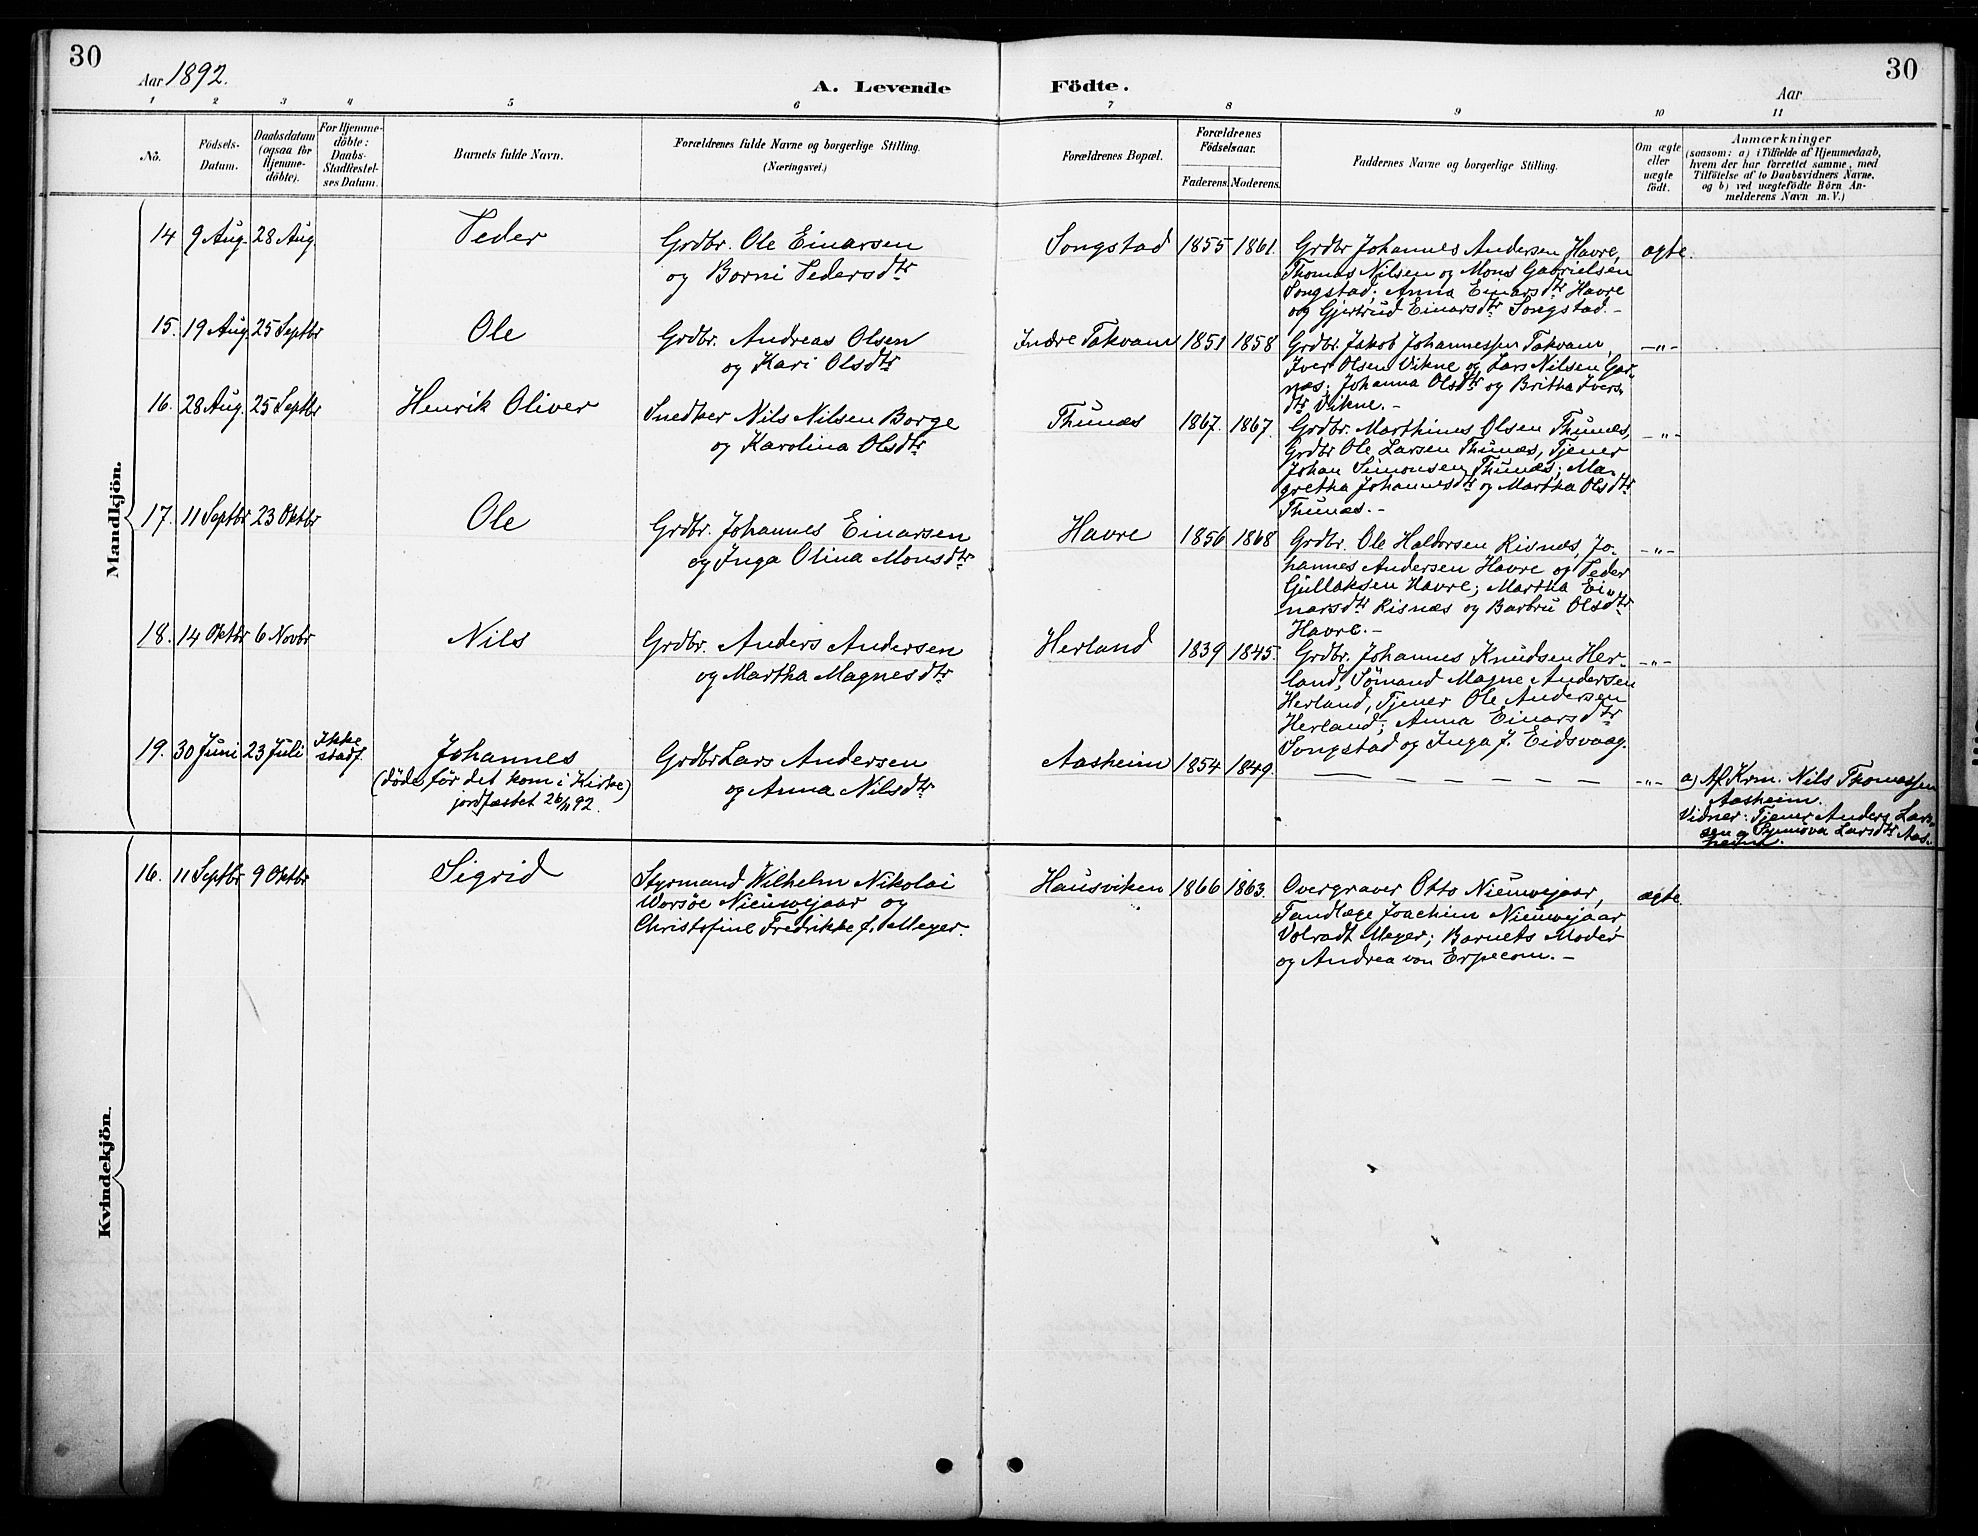 30
Aar 1892.
A. Levende Födte.
Aar
30
1 2 3 4 5 6 7 8 9 10 11
No.
Födsels-
Datum.
Daabsdatum
(ogsaa for
Hjemme-
döbte).
For Hjemme-
döbte:
Daabs-
Stadfæstel-
ses Datum.
Barnets fulde Navn.
Forældrenes fulde Navne og borgerlige Stilling.
(Næringsvei.)
Forældrenes Bopæl.
Forældrenes
Födselsaar.
Faderens. Moderens.
Faddernes Navne og borgerlige Stilling.
Om ægte
eller
uægte
födt.
Anmærkninger
(saasom: a) i Tilfælde af Hjemmedaab,
hvem der har forrettet samme, med
Tilföielse af to Daabsvidners Navne.
og b) ved uægtefödte Börn An-
melderens Navn m. V.)
Mandkjön.
14 9 Aug. 28 Aug. Peder
Grdbr. Ole Einarsen
og Borni Pedersdtr
Songstad 1855 1861.
Grdbr Johannes Andersen Havre,
Thomas Nilsen og Mons Gabrielsen
Songstad; Anna Einarsdtr Havre
og Gjertrud Einarsdtr Songstad.-
ægte.
15. 19 Aug. 25 Septbr Ole
Grdbr. Andreas Olsen
og Kari Olsdtr
Indre Takvam 1851 1858
Grdbr. Jakob Johannessen Takvam,
Iver Olsen Vikne og Lars Nilsen Gar-
næs; Johanna Olsdtr og Britha Ivers-
dtr Vikne.-
-"-
16. 28 Aug. 25 Septbr Henrik Oliver
Snedker Nils Nilsen Borge
og Karolina Olsdtr
Thunæs 1867. 1867.
Grdbr. Marthines Olsen Thunæs,
Grdbr Ole Larsen Thunæs, Tjener
Johan Simonsen Thunæs; Ma-
gretha Johannesdtr og Martha Olsdtr
Thunæs.-
-"-
17. 11 Septbr 23 Oktbr Ole
Grdbr. Johannes Einarsen
og Inga Olina Monsdtr
Havre 1856 1868
Grdbr. Ole Haldorsen Risnæs, Jo-
hannes Andersen Havre og Peder
Gjullaksen Havre; Martha Ei-
narsdtr Risnæs og Barbru Olsdtr
Havre.-
-"-
18. 14 Oktbr 6 Novbr Nils
Grdbr. Anders Andersen
og Martha Magnesdtr
Herland 1839 1845.
Grdbr. Johannes Knudsen Her-
land, Sömand Magne Andersen
Herland, Tjener Ole Andersen
Herland; Anna Einarsdtr
Songstad og Inga J. Eidsvaag.
-"-
19. 30 Juni 23 Juli Ikke
stadf.
Johannes
(döde för det kom i Kirke)
jordfæstet 26/ 92.
Grdbr Lars Andersen
og Anna Nilsdtr
Aasheim 1854 1849.
— — — — — — —
-"-
a) Af Krm. Nils Thomassen
Aasheim.
Vidner: Tjener Anders Lar-
sen og Synnöva Larsdtr Aas-
heim.
Kvindekjön.
16. 11 Septbr 9 Oktbr Sigrid
Styrmand Wilhelm Nikolai
Worsöe Nieuwejaar og
Christofine Fredrikke f. Meyer.
Hausviken 1866 1863.
Overgraver Otto Nieuwejaar,
Tandlæge Joachim Nieuwejaar
Volradt Meyer; Barnets Moder
og Andrea von Erpecom.-
ægte.